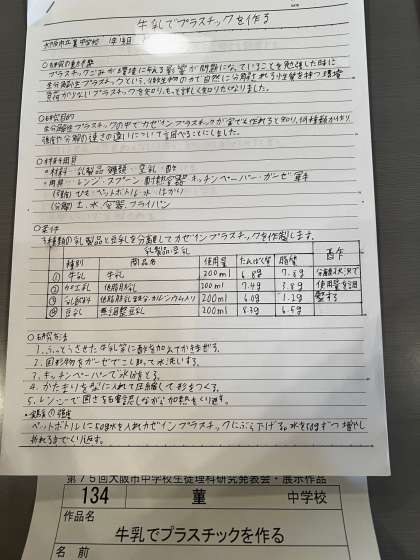 牛乳でプラスチックを作る
大阪市立菫中学校 1年
○研究の動機
プラスチックごみが環境に与える影響が問題になっていることを勉強した時に
生分解性プラスチックという、微生物の力で自然に分解される性質を持つ環境
負荷が少ないプラスチックを知り、もっと詳しく知りたくなりました。
○研究目的
生分解性プラスチックの中でカゼインプラスチックが家でも作れると知り、何種類か作り
強度や分解の速さの違いについて調べることにしました。
○材料・用具
・材料・乳製品 種類・豆乳・酢
・用具・レンジ・スプーン 耐熱容器 キッチンペーパー・ガーゼ 軍手
(強度) ひも・ペットボトル・水・はかり
(分解) 土、水、容器 フライパン
○条件
種類の乳製品と豆乳を分離してカゼインプラスチックを作製します。
乳製品・豆乳 酢
種別 商品名 使用量 たんぱく質 脂質
① 牛乳 牛乳 200ml 6.8g 分離状況で
② 低脂肪乳 200ml 7.4g 3.8g 使用量を調
③ 200ml 6.0g 整する
④ 豆乳 無調整豆乳 200ml 8.3g
○研究方法
1. ふっとうさせた牛乳等に酢を加えてかきまぜる。
2. 固形物をガーゼでこし取って水洗いする。
3. キッチンペーパーで水分をとる。
4. かたまりを型に入れて圧縮して形をつくる。
5. レンジで固さを確認しながら加熱をくり返す。
・実験① 強度
ペットボトルに50g水を入れカゼインプラスチックにぶら下げる。水を50gずつ増やし
折れるまでくり返す。
第75回大阪市中学校生徒理科研究発表会・展示作品
134 菫 中学校
作品名
牛乳でプラスチックを作る
名 前